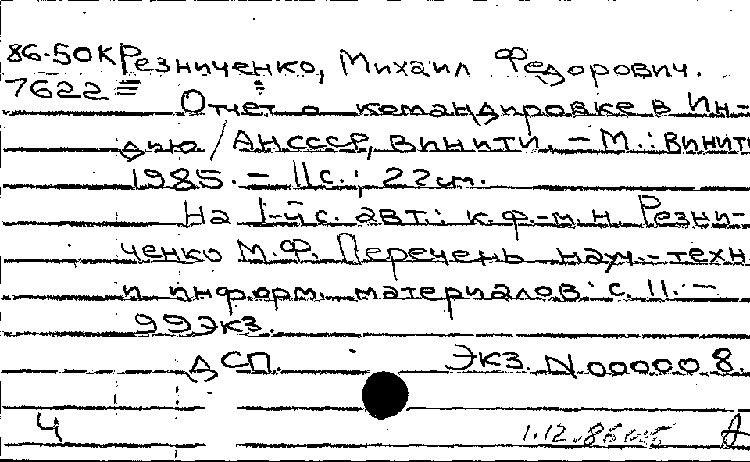 86-50К Резниченко, Михаил Федорович.
7622
Отчет о командировке в Ин-
дию / АН СССР, ВИНИТИ. - М.: ВИНИТИ
1985. - 11 с.; 22 см.
На 1-й с. авт.: к.ф.-м.н. Резни-
ченко М.Ф. Перечень науч.-техн
и информ. материалов: с. 11. -
99 экз.
ДСП. Экз. N 000008.
4
1.12.86